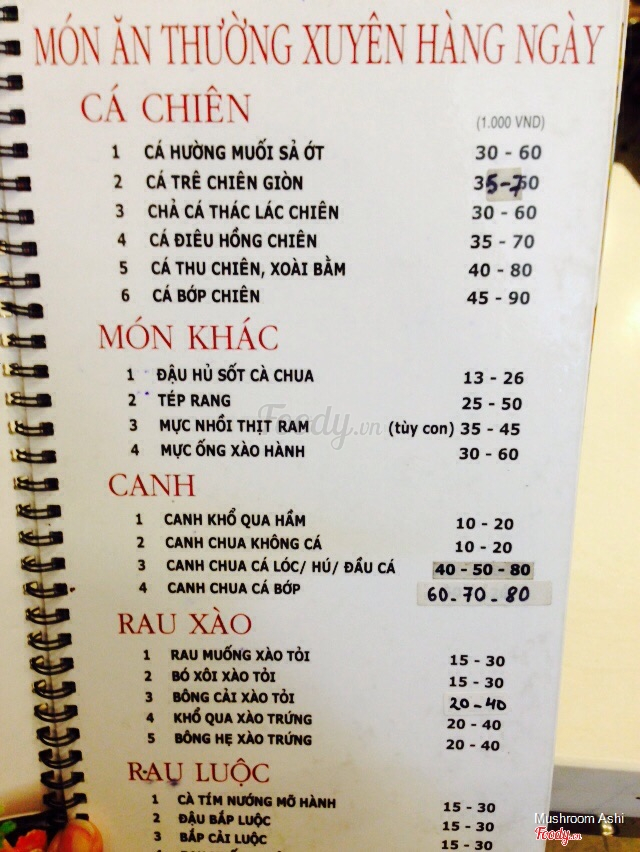 MÓN ĂN THƯỜNG XUYÊN HÀNG NGÀY
CÁ CHIÊN
(1.000 VND)
1 CÁ HƯỜNG MUỐI SẢ ỚT 30 - 60
2 CÁ TRÊ CHIÊN GIÒN 35-70
3 CHẢ CÁ THÁC LÁC CHIÊN 30 - 60
4 CÁ ĐIÊU HỒNG CHIÊN 35 - 70
5 CÁ THU CHIÊN, XOÀI BẰM 40 - 80
6 CÁ BỚP CHIÊN 45 - 90
MÓN KHÁC
1 ĐẬU HỦ SỐT CÀ CHUA 13 - 26
2 TÉP RANG 25 - 50
3 MỰC NHỒI THỊT RAM (tùy con) 35 - 45
4 MỰC ỐNG XÀO HÀNH 30 - 60
Foody.vn
CANH
1 CANH KHỔ QUA HẦM 10 - 20
2 CANH CHUA KHÔNG CÁ 10 - 20
3 CANH CHUA CÁ LÓC/ HÚ/ ĐẦU CÁ 40 - 50 - 80
4 CANH CHUA CÁ BỚP 60-70-80
RAU XÀO
1 RAU MUỐNG XÀO TỎI 15 - 30
2 BÓ XÔI XÀO TỎI 15 - 30
3 BÔNG CẢI XÀO TỎI 20-40
4 KHỔ QUA XÀO TRỨNG 20 - 40
5 BÔNG HẸ XÀO TRỨNG 20 - 40
RAU LUỘC
1 CÀ TÍM NƯỚNG MỠ HÀNH 15 - 30
2 ĐẬU BẮP LUỘC 15 - 30
3 BẮP CẢI LUỘC 15 - 30
Mushroom Ashi
Foody.vn